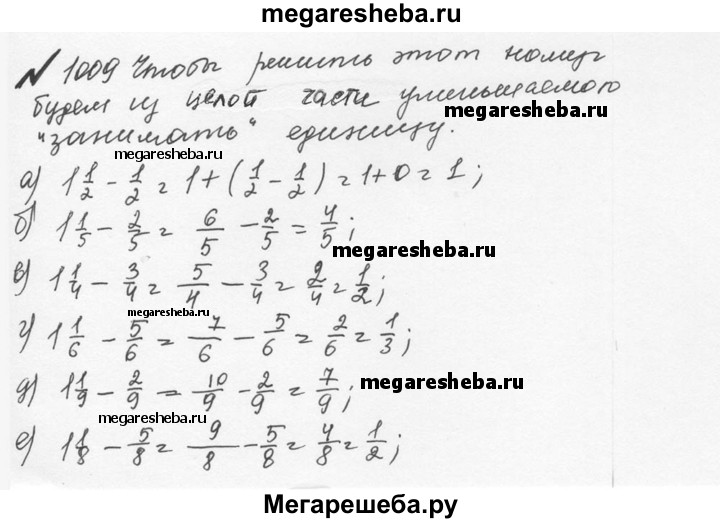 megaresheba.ru
№ 1009 Чтобы решить этот номер
будем из целой части уменьшаемого
megaresheba.ru
"занимать" единицу.
megaresheba.ru
а) 1 1/2 - 1/2 = 1 + (1/2 - 1/2) = 1 + 0 = 1;
б) 1 1/5 - 2/5 = 6/5 - 2/5 = 4/5;
megaresheba.ru
в) 1 1/4 - 3/4 = 5/4 - 3/4 = 2/4 = 1/2;
megaresheba.ru
г) 1 1/6 - 5/6 = 7/6 - 5/6 = 2/6 = 1/3;
д) 1 1/9 - 2/9 = 10/9 - 2/9 = 7/9;
megaresheba.ru
megaresheba.ru
е) 1 1/8 - 5/8 = 9/8 - 5/8 = 4/8 = 1/2;
Мегарешеба.ру